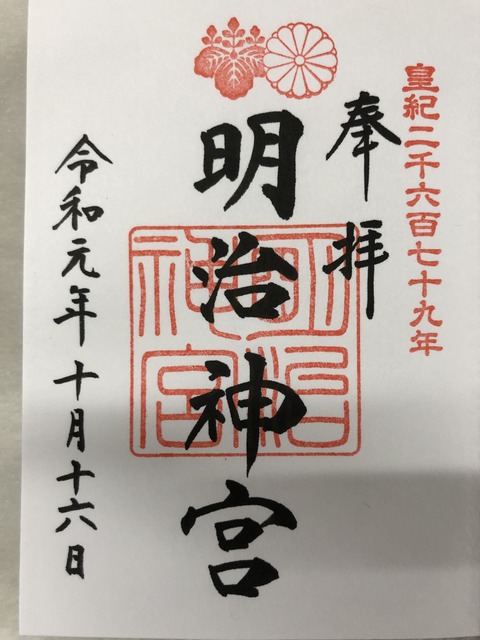 皇紀二千六百七十九年
奉拝
明治神宮
明治神宮
令和元年十月十六日